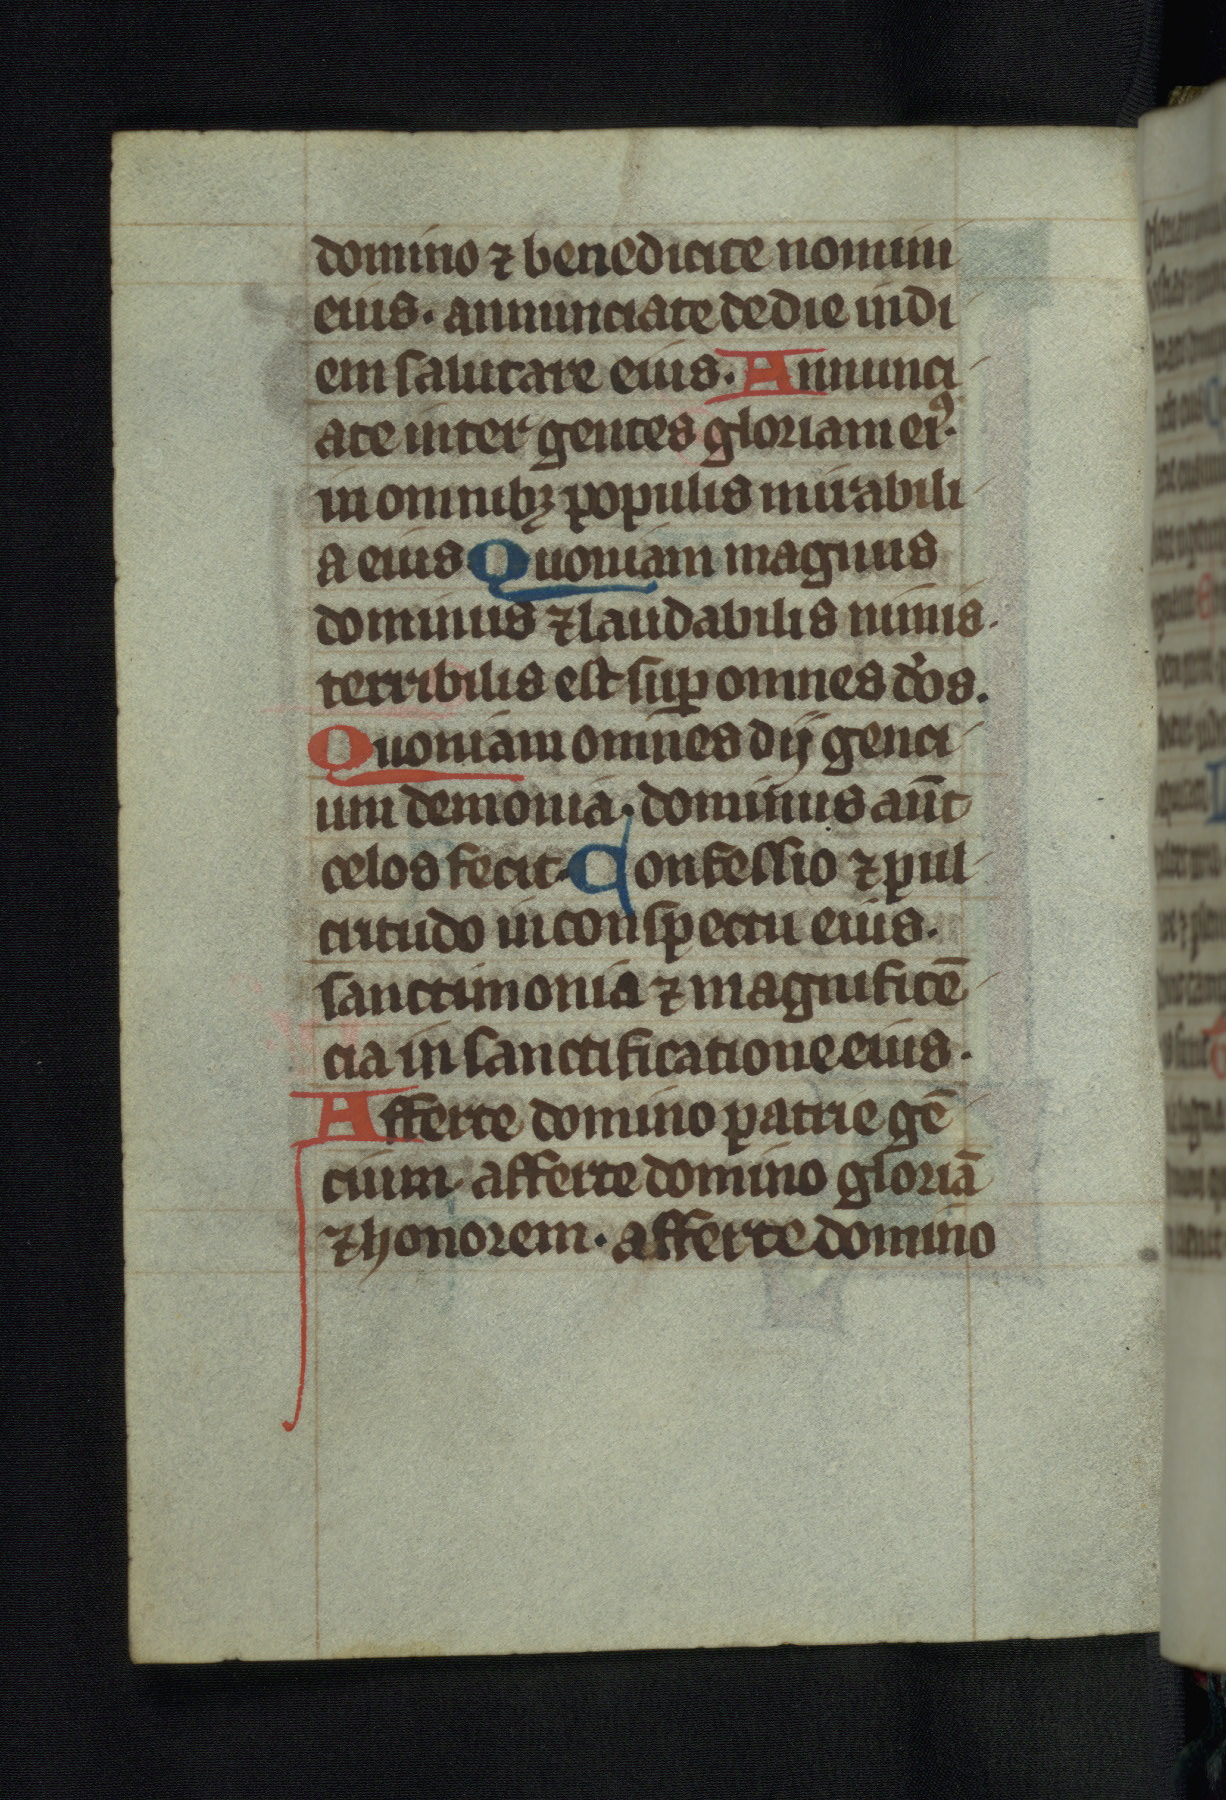 domino ⁊ benedicite nomini
eius. annunciate de die in di
em salutare eius. Annunci
ate inter gentes gloriam eiꝰ.
in omnibꝫ populis mirabili
a eius Quoniam magnus
dominus ⁊ laudabilis nimis.
terribilis est suꝑ omnes do̾s.
Quoniam omnes dij genci
um demonia. dominus aūt
celos fecit. Confessio ⁊ pul
critudo in conspectu eius.
sanctimonia ⁊ magnificē
cia in sanctificatione eius.
Afferte domino patrie gē
cium. afferte domino gloriā
⁊ honorem. afferte domino